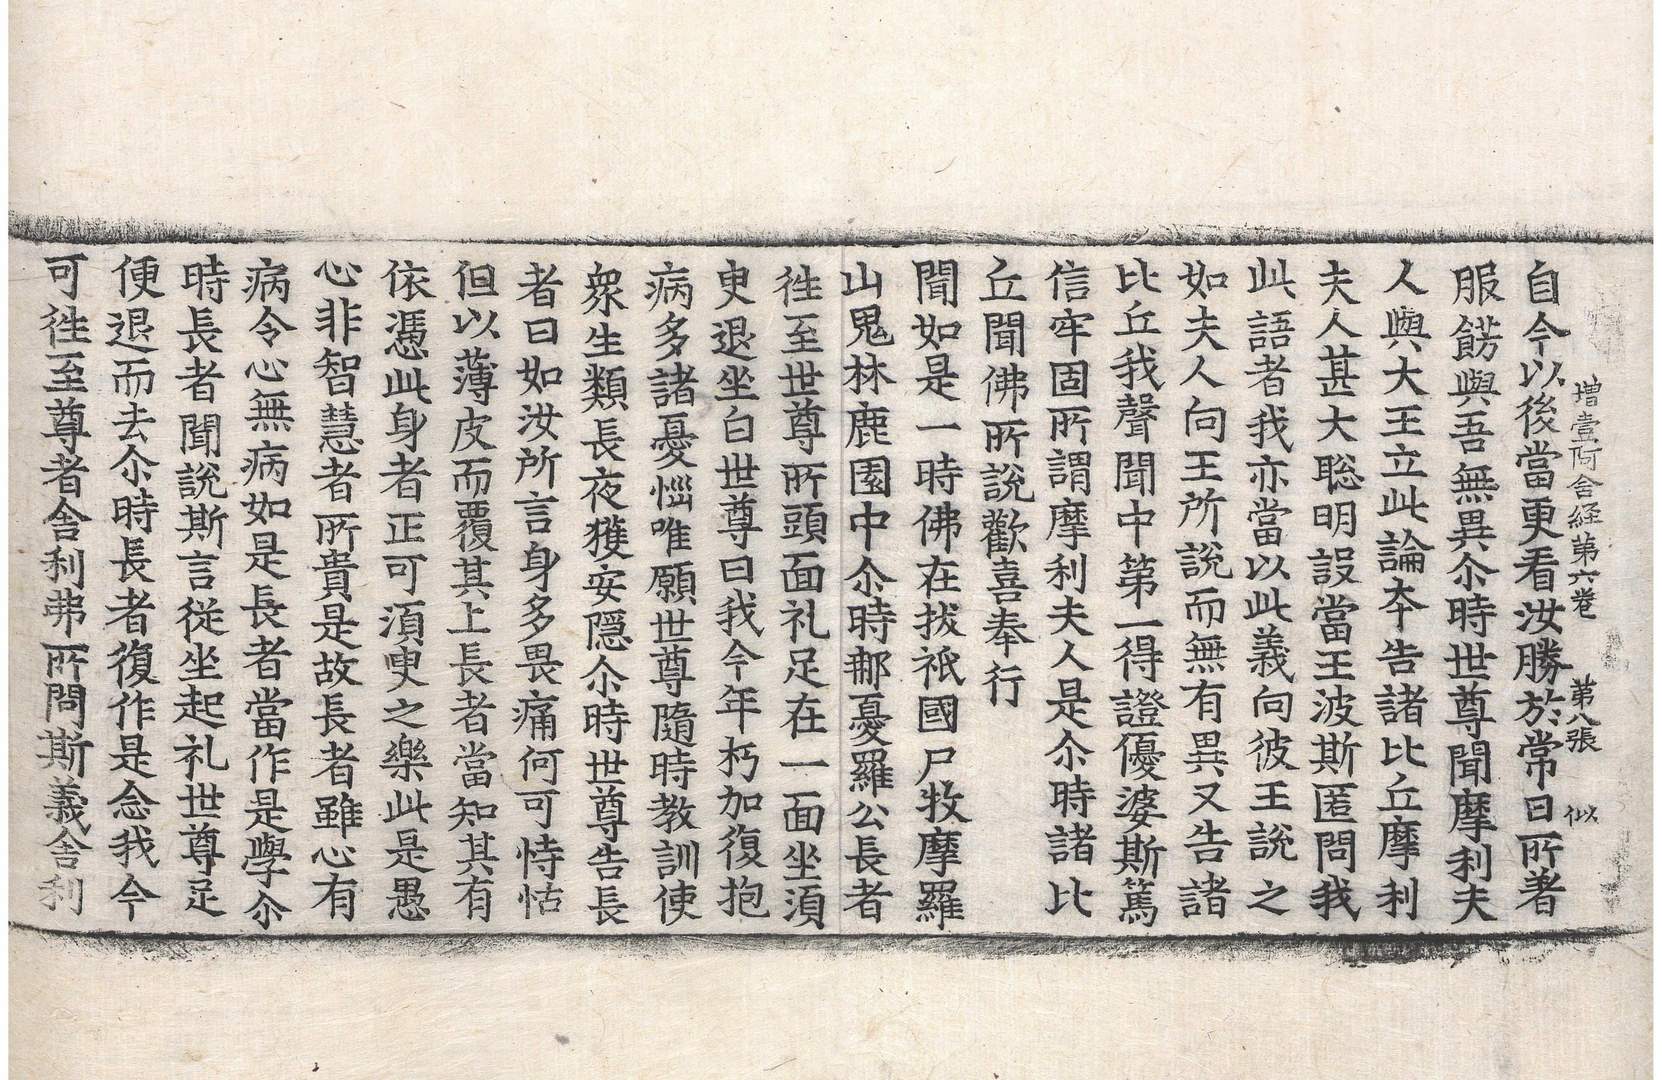 增壹阿含経第六卷　第八張　似
自今以後當更看汝勝於常日所著
服餝與吾無異尒時世尊聞摩利夫
人與大王立此論夲告諸比丘摩利
夫人甚大聡明設當王波斯匿問我
此語者我亦當以此義向彼王說之
如夫人向王所說而無有異又告諸
比丘我聲聞中第一得證優婆斯篤
信牢固所謂摩利夫人是尒時諸比
丘聞佛所說歡喜奉行
聞如是一時佛在拔祇國尸牧摩羅
山鬼林鹿園中尒時那憂羅公長者
徃至世尊所頭面礼足在一面坐湏
臾退坐白世尊曰我今年朽加復抱
病多諸憂惱唯願世尊隨時教訓使
衆生類長夜獲安隱尒時世尊告長
者曰如汝所言身多畏痛何可恃怙
但以薄皮而覆其上長者當知其有
依憑此身者正可湏臾之樂此是愚
心非智慧者所貴是故長者雖心有
病令心無病如是長者當作是學尒
時長者聞說斯言從坐起礼世尊足
便退而去尒時長者復作是念我今
可徃至尊者舍利弗所問斯義舍利